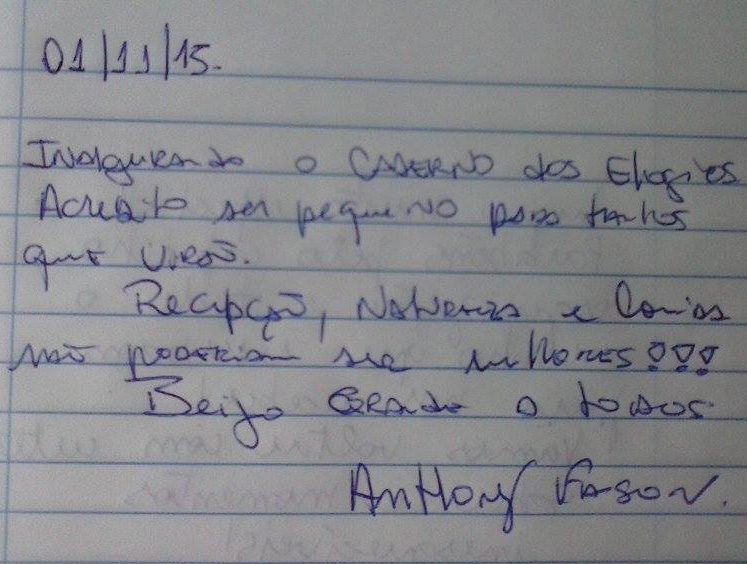 01/11/15.
Inaugurando o CADERNO dos Elogios
Acredito ser pequeno para tantos
que virão.
Recepção, Natureza e Comida
não poderiam ser melhores!!!
Beijo GRANDE a todos
Anthony